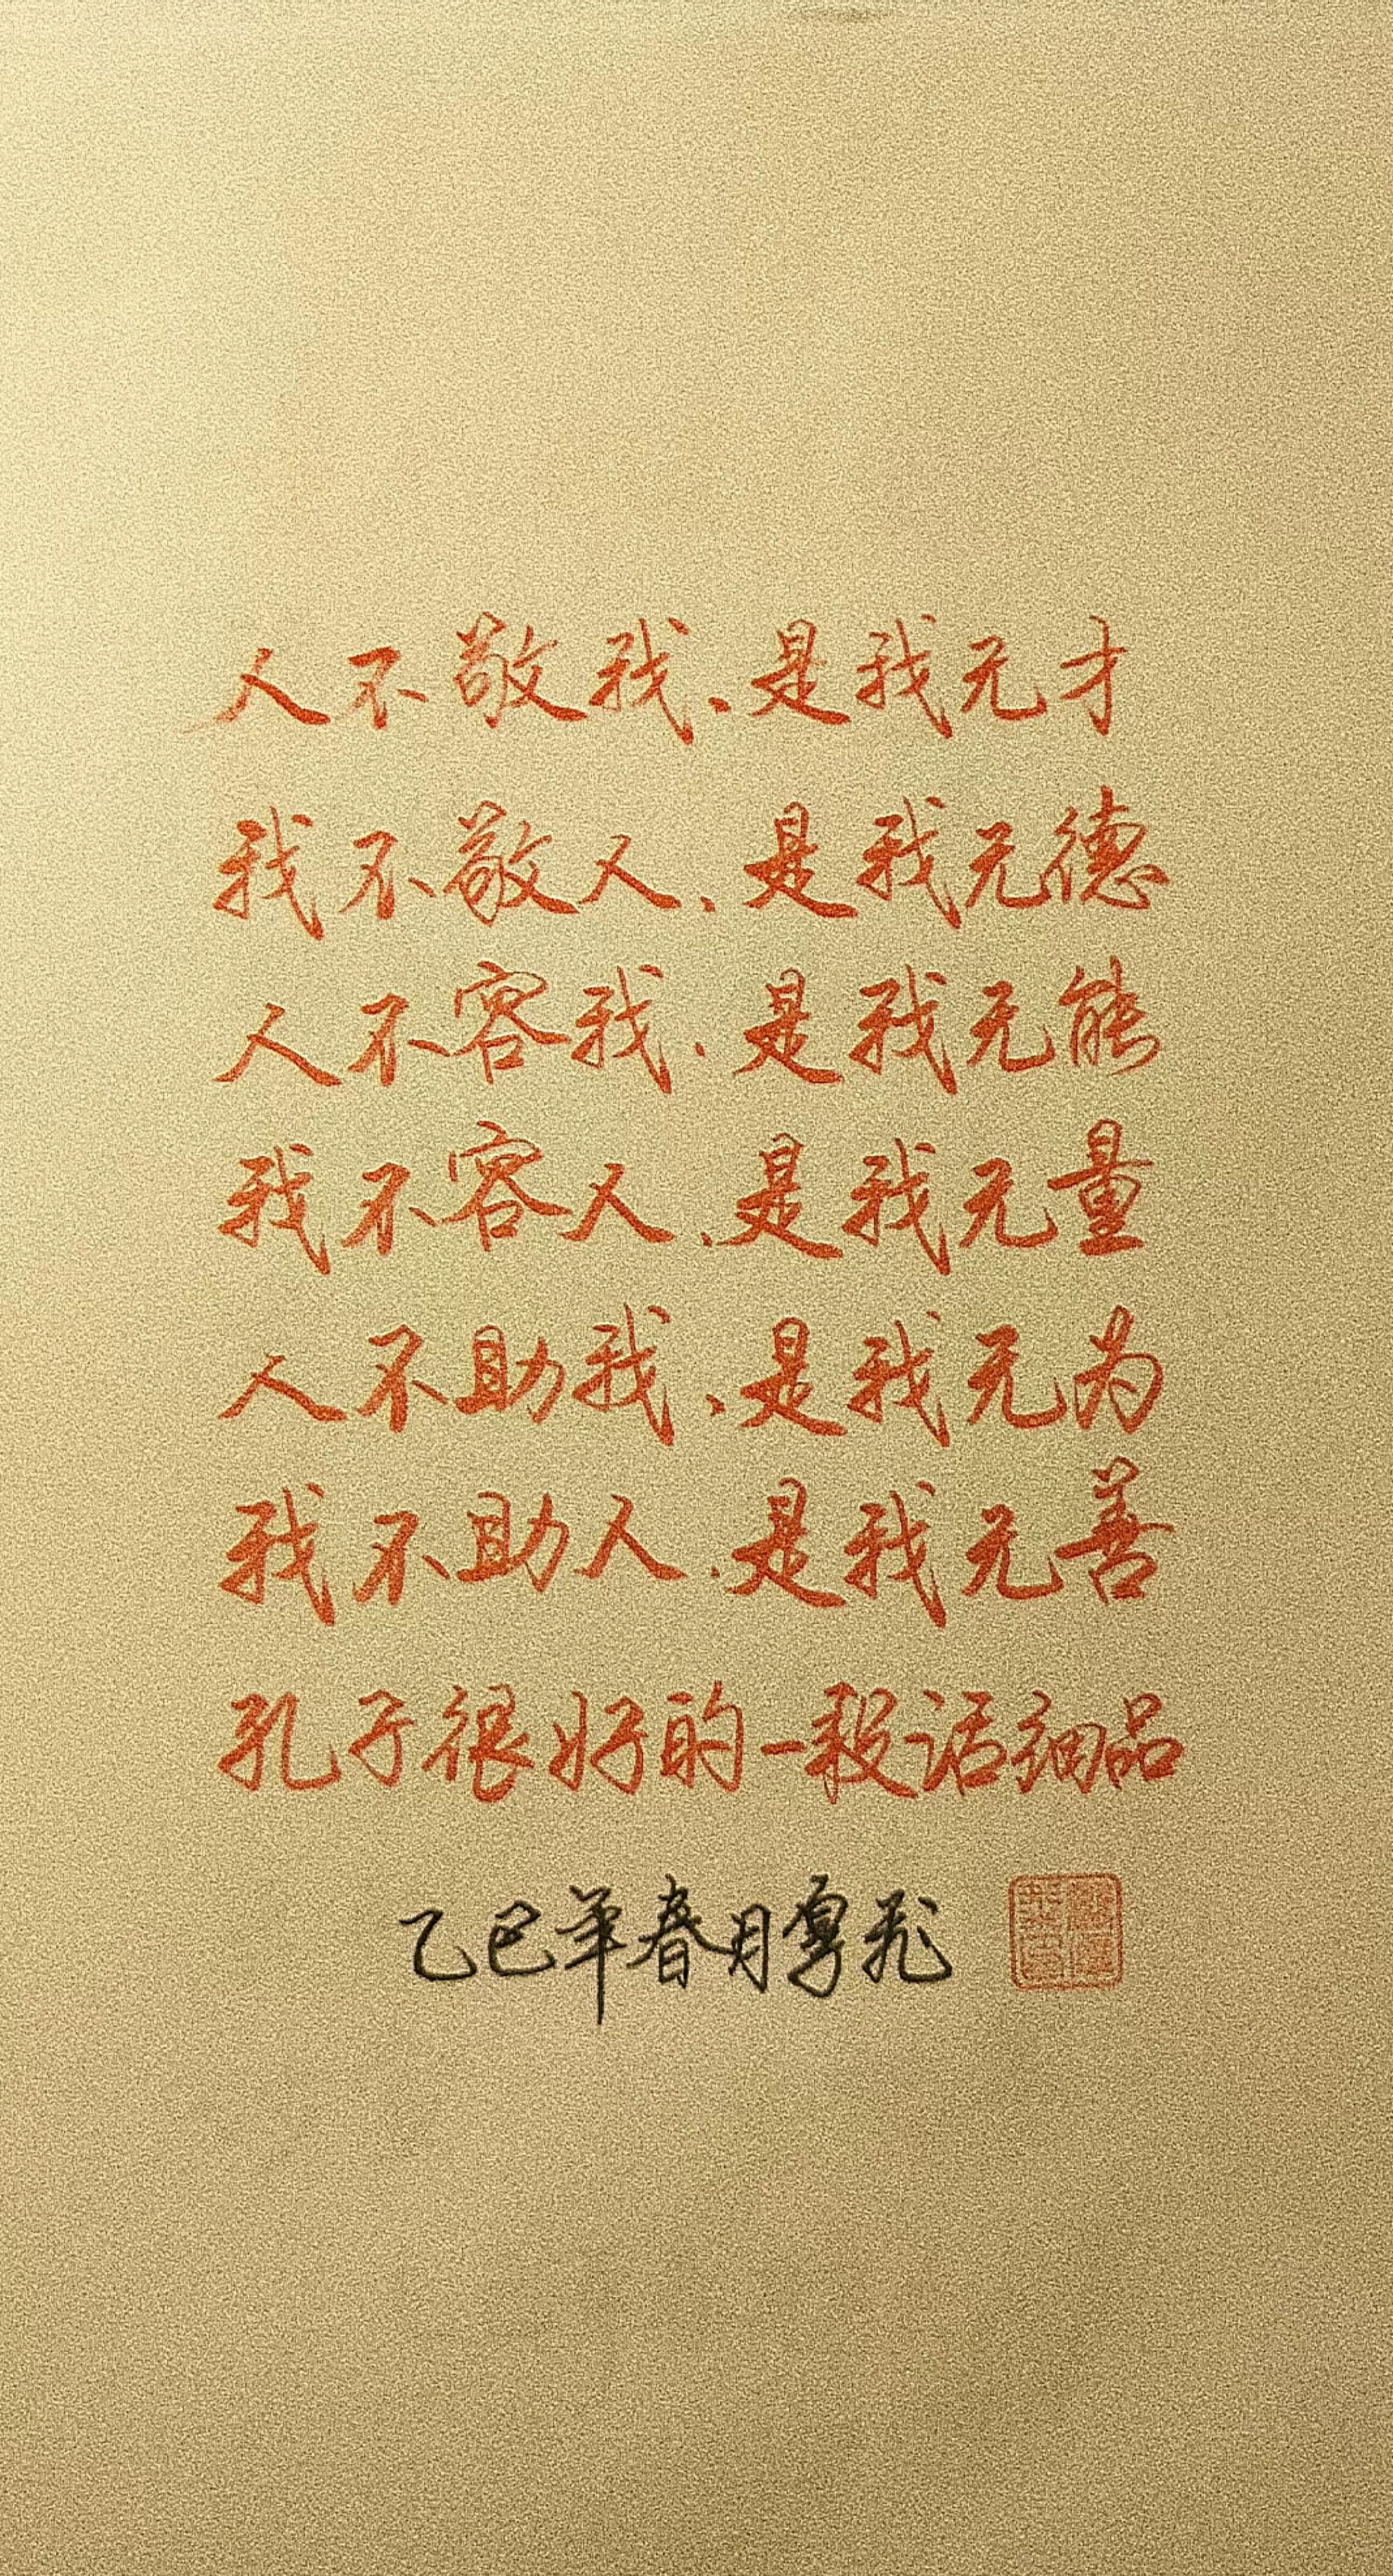 人不敬我、是我无才
我不敬人、是我无德
人不容我、是我无能
我不容人、是我无量
人不助我、是我无为
我不助人、是我无善
孔子很好的一段话细品
乙巳年春月